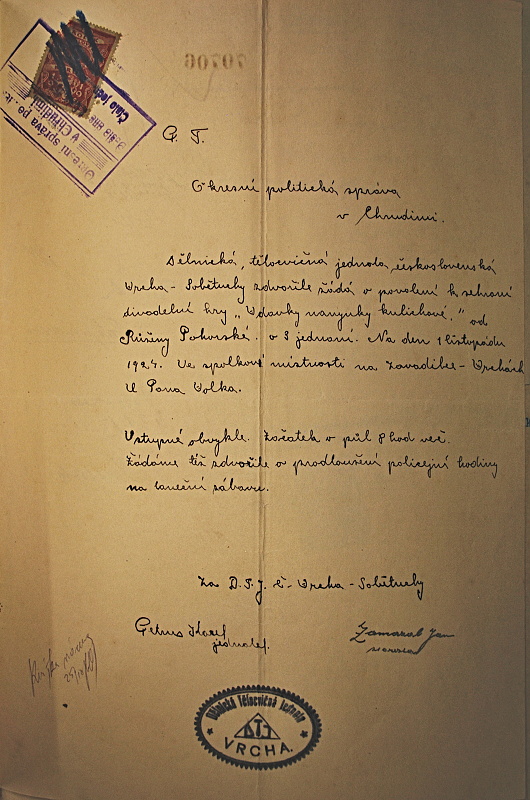 00707
Okresní správa po
v Chrudimi
Došlo dne
Číslo jed
G. T.
Okresní politická správa
v Chrudimi.
Dělnická, tělocvičná jednota, československá
Vrcha - Soběтuchy zdvořile žádá o povolení k sehraní
divadelní hry „Vdavky nanynky kulichové." od
Růženy Pohorské. o 3 jednaní. Na den 1 listopadu
1924. Ve spolkové místnosti na Zavadilce - Vrchách
U Pana Volka.
Vstupné obvykle. Začátek v půl 8 hod več.
Žádáme též zdvořile o prodloužení policejní hodiny
na taneční zábavu.
Za D.T.J. č. Vrcha - Sobětuchy
Petrus Josef
jednatel.
Zamazal Jan
starosta
Dělnická Tělocvičná Jednota
DTJ
VRCHA.